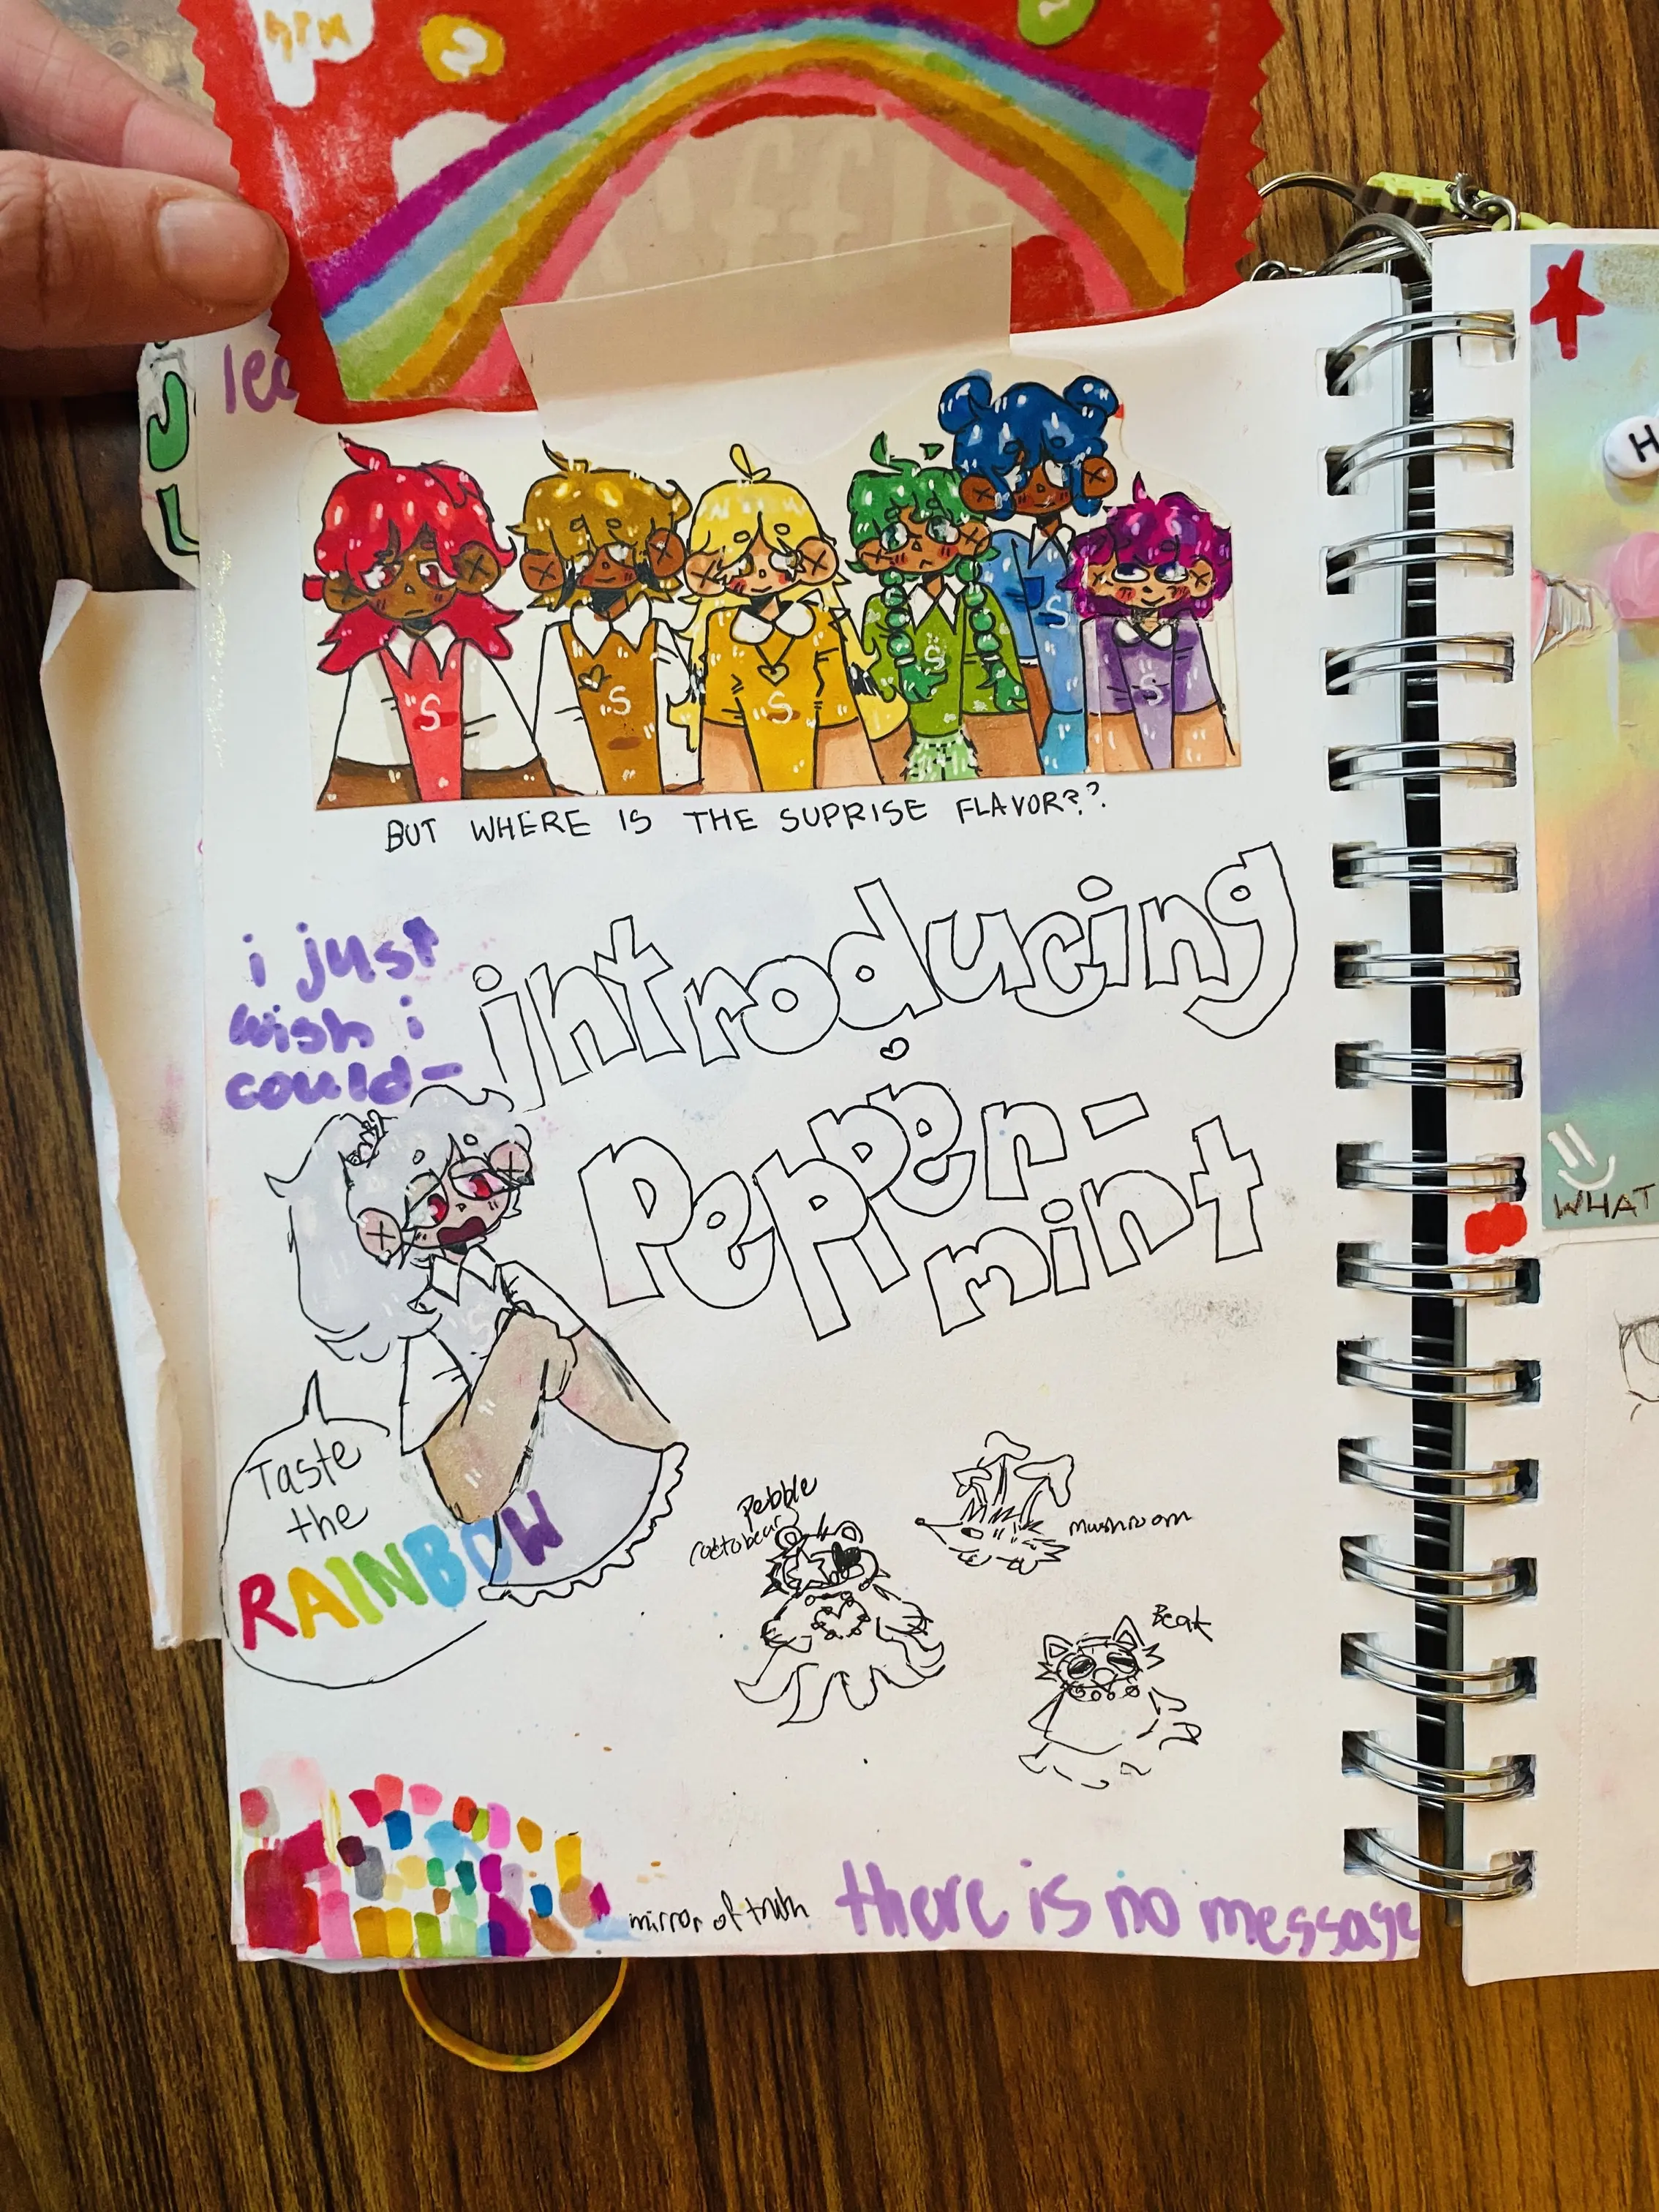 S
lea
S
S
S
S
S
S
BUT WHERE IS THE SUPRISE FLAVOR??
i just
wish i
could-
introducing
Pepper-
mint
S
Taste
the
RAINBOW
Pebble
mushroom
Beak
mirror of truth
there is no message
H
WHAT